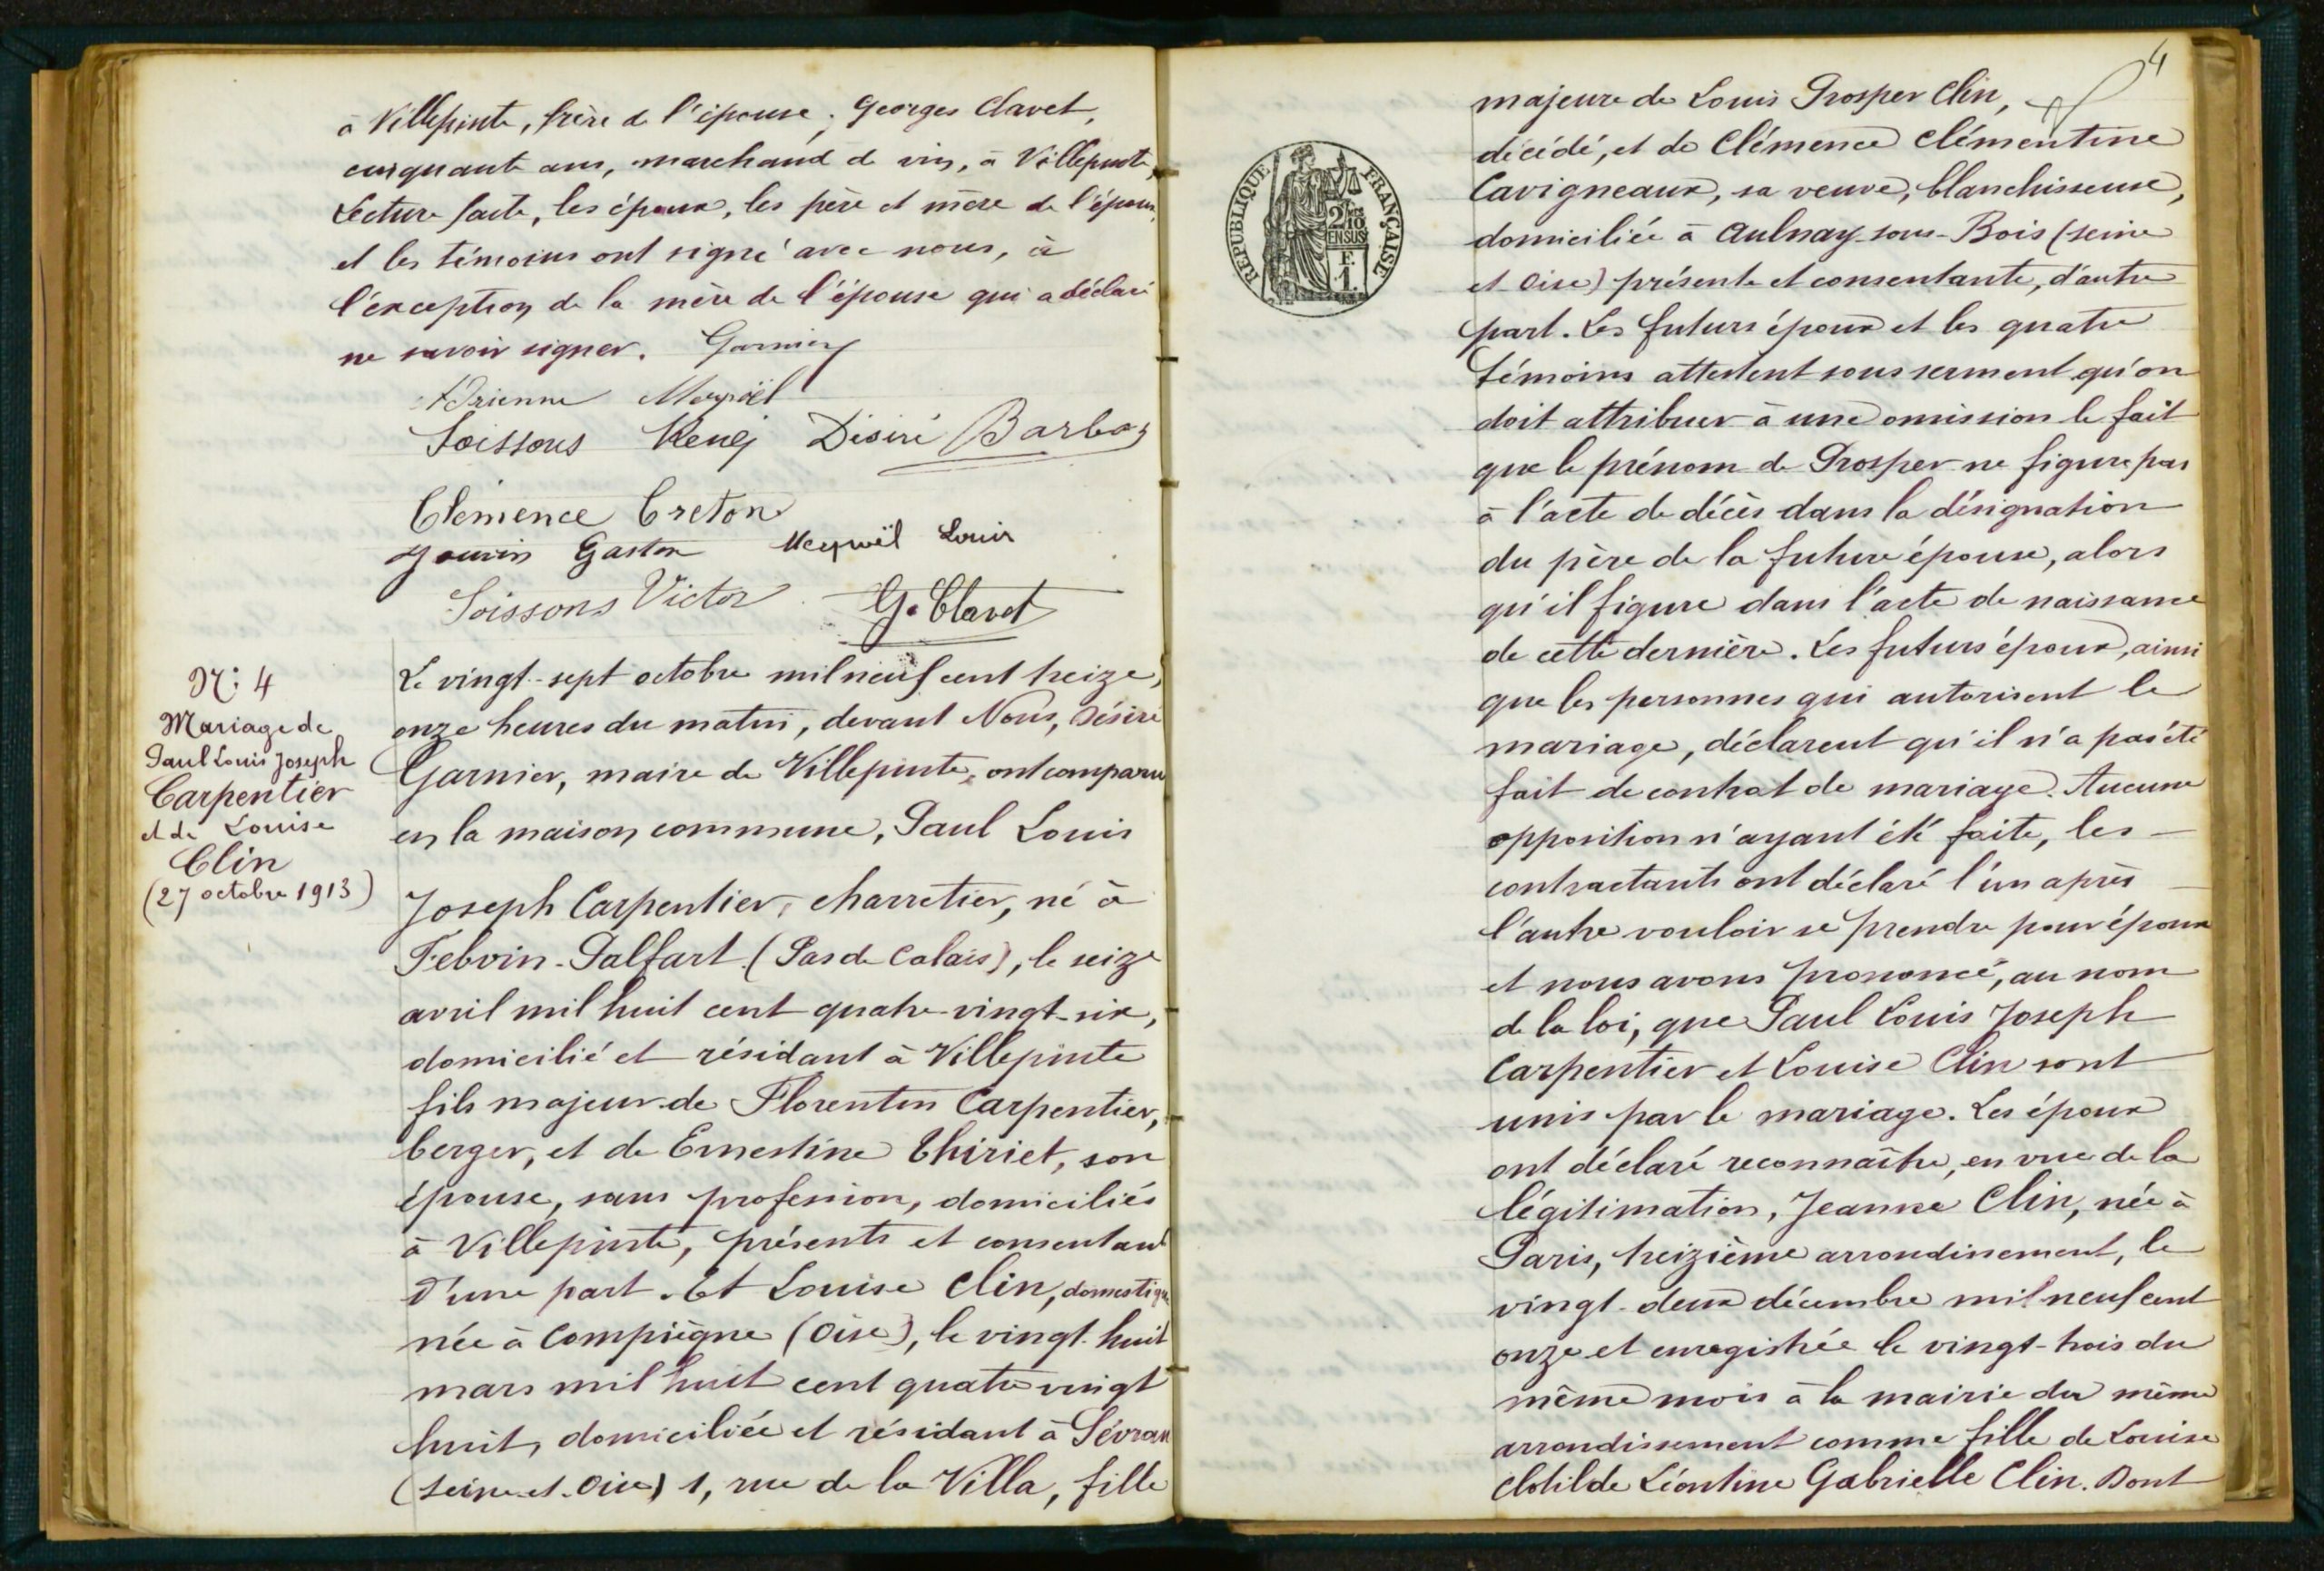 à Villepinte, frère de l'épouse; Georges Clavet,
cinquante ans, marchand de vin, à Villepinte,
Lecture faite, les époux, les père et mère de l'époux,
et les témoins ont signé avec nous, à
l'exception de la mère de l'épouse qui a déclaré
ne savoir signer. Garnier
Adrienne
Soissons René Désiré Barbas
Clémence Creton
Jouvin Gaston Louis
Soissons Victor G. Clavet
N: 4
Mariage de
Paul Louis Joseph
Carpentier
et de Louise
Clin
(27 octobre 1913)
Le vingt-sept octobre mil neuf cent treize,
onze heures du matin, devant Nous, Désiré
Garnier, maire de Villepinte, ont comparu
en la maison commune, Paul Louis
Joseph Carpentier, charretier, né à
Febvin-Palfart (Pas de Calais), le seize
avril mil huit cent quatre-vingt-six,
domicilié et résidant à Villepinte
fils majeur de Florentin Carpentier,
berger, et de Ernestine Thiriet, son
épouse, sans profession, domiciliés
à Villepinte, présents et consentant
d'une part. Et Louise Clin, domestique
née à Compiègne (Oise), le vingt-huit
mars mil huit cent quatre vingt
huit, domiciliée et résidant à Sévran
(Seine-et-Oise) 1, rue de la Villa, fille
4
RÉPUBLIQUE FRANÇAISE
2/10
EN SUS
F.
1.
majeure de Louis Prosper Clin,
décédé, et de Clémence Clémentine
Cavigneaux, sa veuve, blanchisseuse,
domiciliée à Aulnay-sous-Bois (Seine
et Oise) présente et consentante, d'autre
part. Les futurs époux et les quatre
témoins attestent sous serment qu'on
doit attribuer à une omission le fait
que le prénom de Prosper ne figure pas
à l'acte de décès dans la désignation
du père de la future épouse, alors
qu'il figure dans l'acte de naissance
de cette dernière. Les futurs époux, ainsi
que les personnes qui autorisent le
mariage, déclarent qu'il n'a pas été
fait de contrat de mariage. Aucune
opposition n'ayant été faite, les
contractants ont déclaré l'un après
l'autre vouloir se prendre pour époux
et nous avons prononcé, au nom
de la loi, que Paul Louis Joseph
Carpentier et Louise Clin sont
unis par le mariage. Les époux
ont déclaré reconnaître, en vue de la
légitimation, Jeanne Clin, née à
Paris, treizième arrondissement, le
vingt-deux décembre mil neuf cent
onze et enregistrée le vingt-trois du
même mois à la mairie du même
arrondissement comme fille de Louise
Clotilde Léontine Gabrielle Clin. Dont